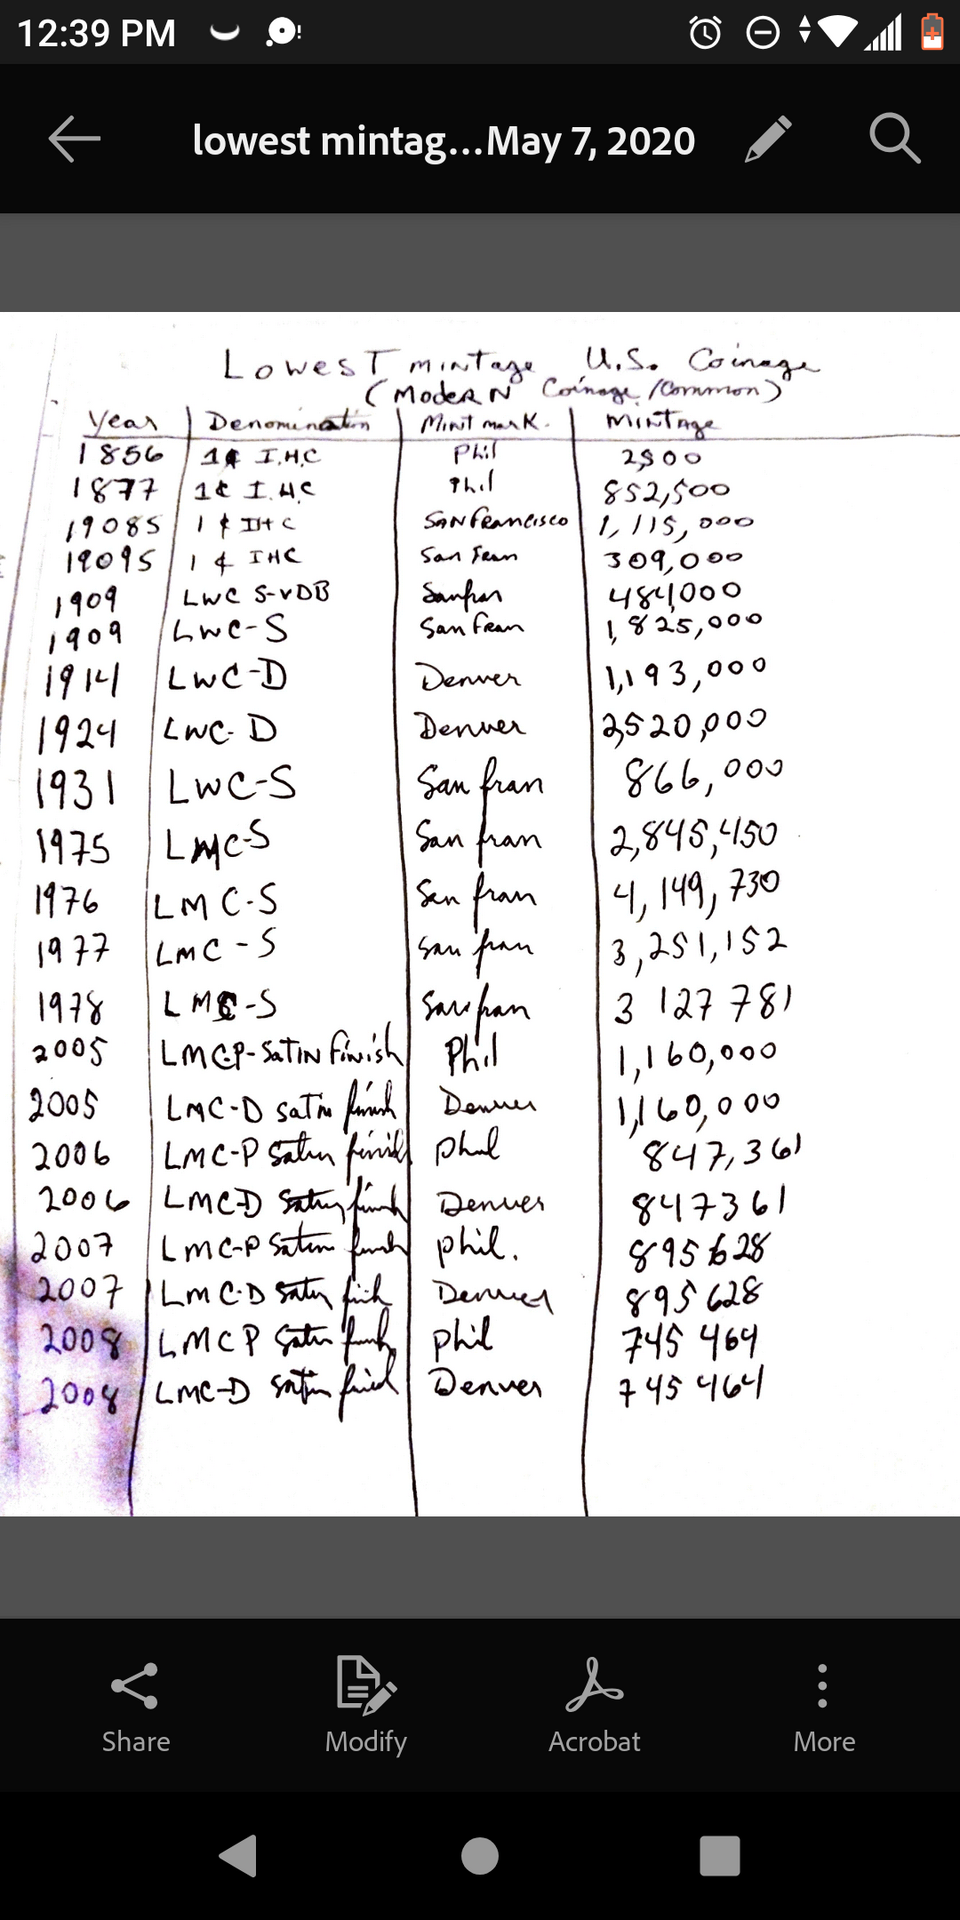 12:39 PM
lowest mintag...May 7, 2020
Lowest mintage U.S. Coinage
(Modern Coinage/Common)
Year Denomination Mint mark. Mintage
1856 1¢ I.H.C Phil 2,500
1877 1¢ I.H.C Phil 852,500
1908S 1¢ IHC San Francisco 1,115,000
1909S 1¢ IHC San Fran 309,000
1909 LWC S-VDB Sanfran 484,000
1909 LWC-S San Fran 1,825,000
1914 LWC-D Denver 1,193,000
1924 LWC-D Denver 2,520,000
1931 LWC-S San fran 866,000
1975 LMC-S San fran 2,845,450
1976 LMC-S San fran 4,149,730
1977 LMC-S San fran 3,251,152
1978 LMC-S San fran 3 127 781
2005 LMCP-Satin Finish Phil 1,160,000
2005 LMC-D satin finish Denver 1,160,000
2006 LMC-P Satin finish Phil 847,361
2006 LMC-D Satin finish Denver 847361
2007 LMC-P Satin finish phil. 895628
2007 LMC-D Satin finish Denver 895628
2008 LMCP Satin finish phil 745 464
2008 LMC-D Satin finish Denver 745 464
Share Modify Acrobat More